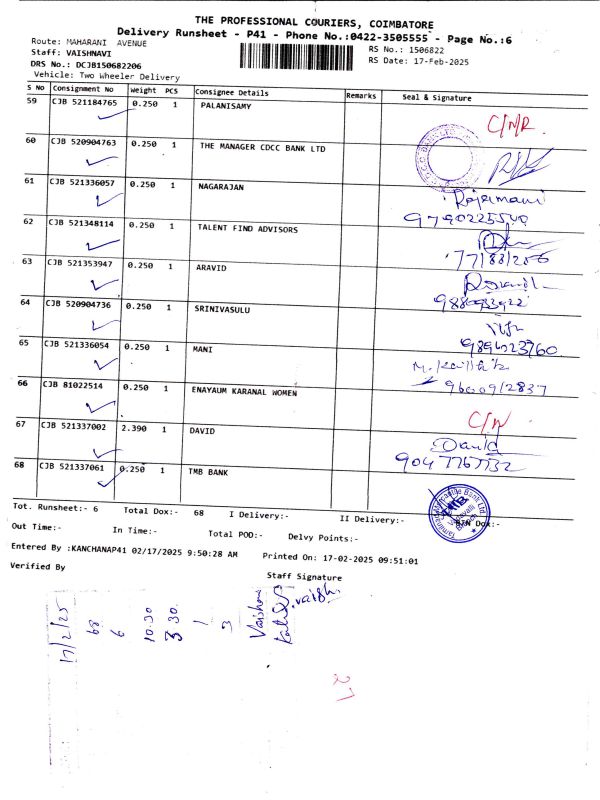 THE PROFESSIONAL COURIERS, COIMBATORE
Delivery Runsheet - P41 - Phone No.:0422-3505555 - Page No.:6
Route: MAHARANI AVENUE
RS No.: 1506822
Staff: VAISHNAVI
RS Date: 17-Feb-2025
DRS No.: DCJB150682206
Vehicle: Two Wheeler Delivery
S No Consignment No Weight PCS Consignee Details Remarks Seal & Signature
59 CJB 521184765 0.250 1 PALANISAMY
60 CJB 520904763 0.250 1 THE MANAGER CDCC BANK LTD
61 CJB 521336057 0.250 1 NAGARAJAN Rajamani
62 CJB 521348114 0.250 1 TALENT FIND ADVISORS
63 CJB 521353947 0.250 1 ARAVID
64 CJB 520904736 0.250 1 SRINIVASULU
65 CJB 521336054 0.250 1 MANI
66 CJB 81022514 0.250 1 ENAYAUM KARANAL WOMEN
67 CJB 521337002 2.390 1 DAVID David
68 CJB 521337061 0.250 1 TMB BANK
Tot. Runsheet:- 6 Total Dox:- 68 I Delivery:- II Delivery:- Dox:-
Out Time:- In Time:- Total POD:- Delvy Points:-
Entered By :KANCHANAP41 02/17/2025 9:50:28 AM Printed On: 17-02-2025 09:51:01
Verified By
Staff Signature
17/2/25
68
6
10.30
3.30
1
3